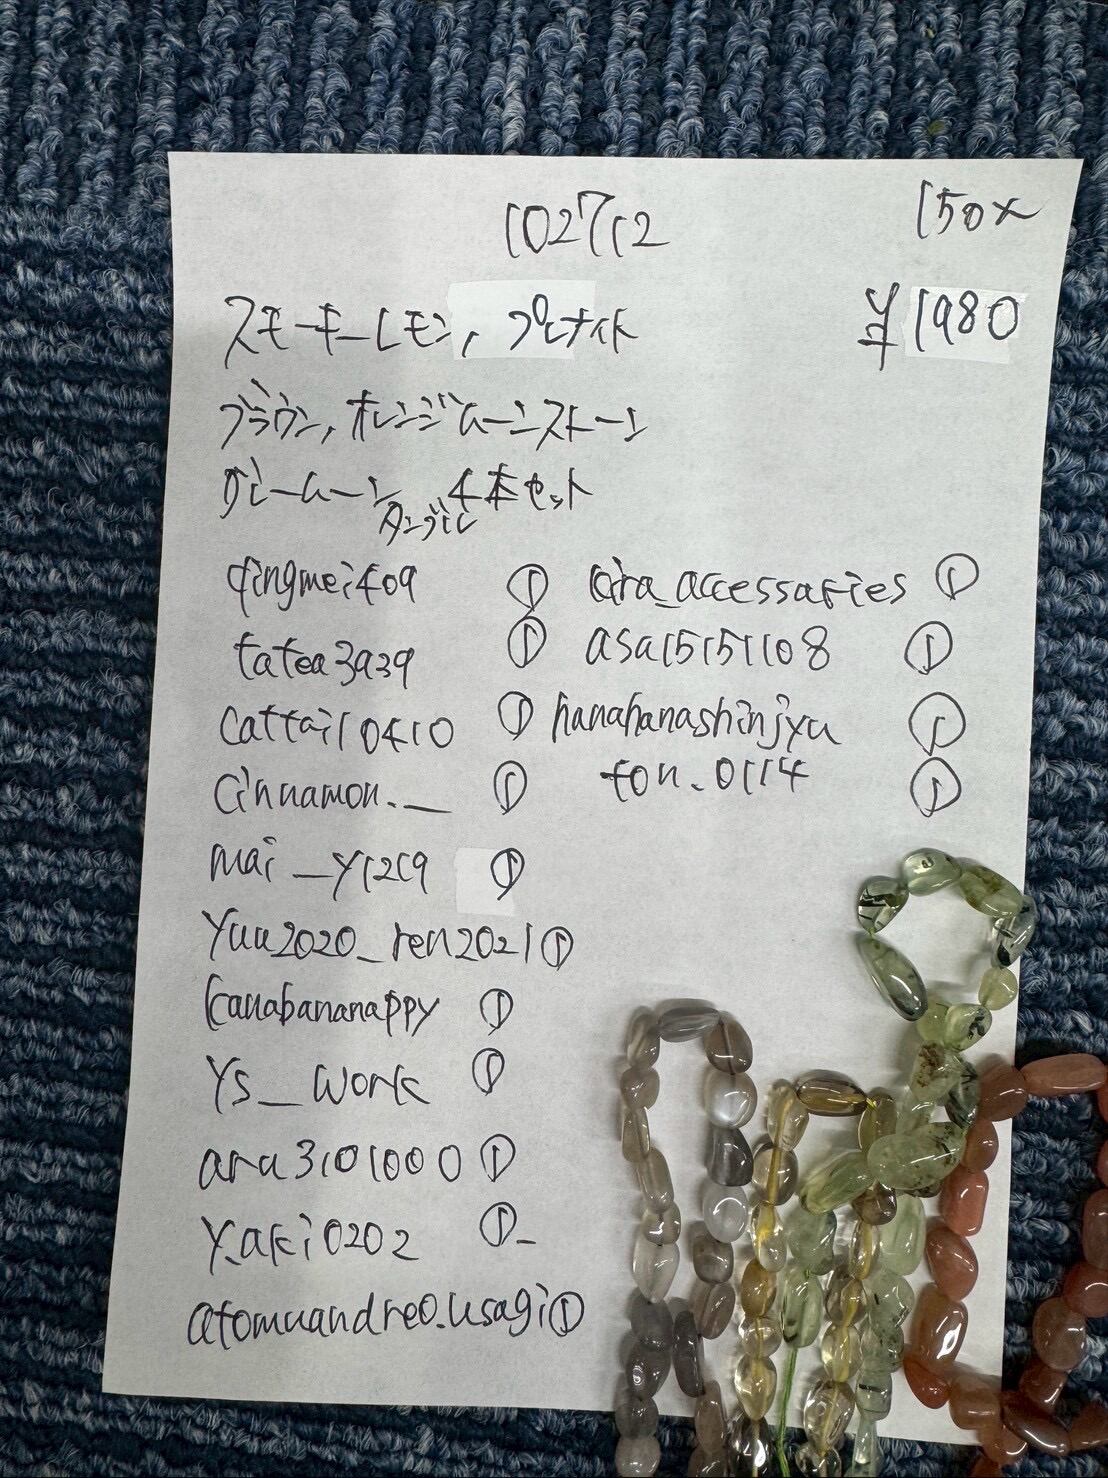 102712
150×
スモーキーレモン, プレナイト
¥1980
ブラウン, オレンジムーンストーン
グレームーン 4本セット
タンブル
qingmei409 ①
tatea3939 ①
cattail0410 ①
cinnamon.__ ①
mai_y1219 ①
Yuu2020_ren2021 ①
kanabananappy ①
Ys__work ①
ara3101000 ①
y.aki0202 ①
atomuandreo.usagi ①
kira_accessaries ①
asa15151108 ①
hanahanashinjyu ①
ton.0114 ①